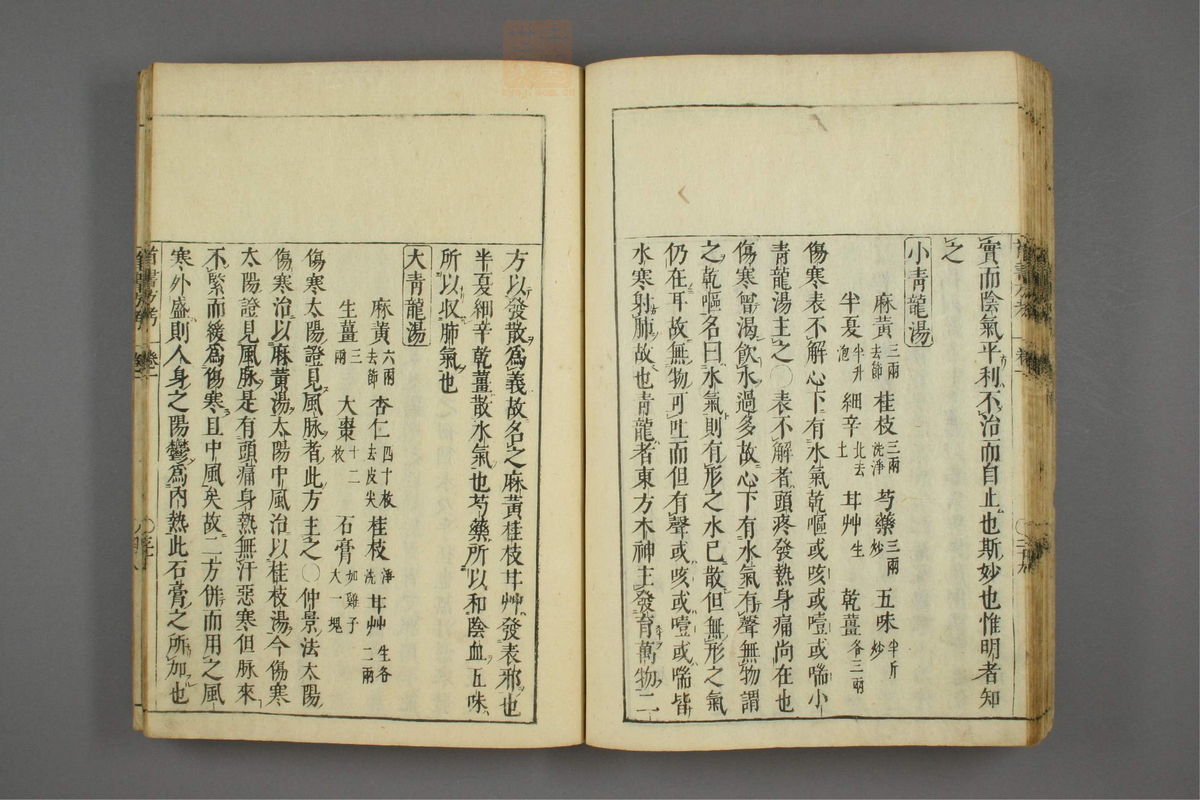 實而陰氣平利不治而自止也斯妙也惟明者知
之
小青龍湯
麻黃三兩去節 桂枝三兩洗淨 芍藥三兩炒 五味半斤炒
半夏半升泡 細辛北去土 甘艸生 乾薑各三兩
傷寒表不解心下有水氣乾嘔或咳或噎或喘小
青龍湯主之〇表不解者頭疼發熱身痛尚在也
傷寒曾渴飲水過多故心下有水氣有聲無物謂
之乾嘔名曰水氣則有形之水已散但無形之氣
仍在耳故無物可吐而但有聲或咳或噎或喘皆
水寒射肺故也青龍者東方木神主發育萬物二
方以發散爲義故名之麻黃桂枝甘艸發表邪也
半夏細辛乾薑散水氣也芍藥所以和陰血五味
所以收肺氣也
大青龍湯
麻黃六兩去節 杏仁四十枚去皮尖 桂枝淨洗 甘艸生各二兩
生薑三兩 大棗十二枚 石膏如雞子大一塊
傷寒太陽證見風脉者此方主之〇仲景法太陽
傷寒治以麻黃湯太陽中風治以桂枝湯今傷寒
太陽證見風脉是有頭痛身熱無汗惡寒但脉來
不緊而緩爲傷寒且中風矣故二方併而用之風
寒外盛則人身之陽鬱爲內熱此石膏之所加也